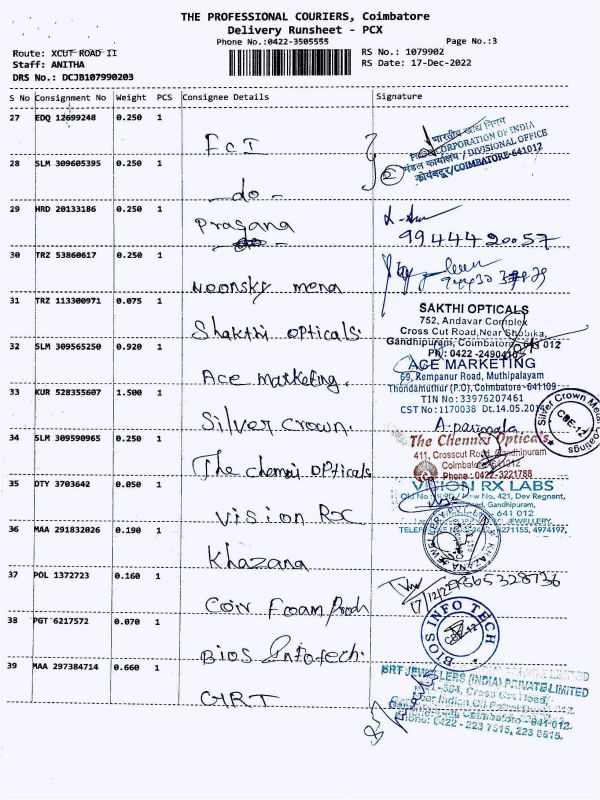 THE PROFESSIONAL COURIERS, Coimbatore
Delivery Runsheet - PCX
Phone No.:0422-3505555
Page No.:3
Route: XCUT ROAD II
RS No.: 1079902
Staff: ANITHA
RS Date: 17-Dec-2022
DRS No.: DCJB107990203
S No Consignment No Weight PCS Consignee Details Signature
27 EDQ 12699248 0.250 1
FCI
भारतीय खाद्य निगम
CORPORATION OF INDIA
मंडल कार्यालय / DIVISIONAL OFFICE
कोयंबटूर/COIMBATORE-641012
28 SLM 309605395 0.250 1
-do-
29 HRD 20133186 0.250 1
Prasana
9944420057
30 TRZ 53860617 0.250 1
Neonsky mena
31 TRZ 113300971 0.075 1
Shakthi opticals.
SAKTHI OPTICALS
752, Andavar Complex
Cross Cut Road, Near Shobika,
Gandhipuram, Coimbatore- 641 012
Ph: 0422 -2490410
32 SLM 309565250 0.920 1
Ace marketing.
ACE MARKETING
69, Kempanur Road, Muthipalayam
Thondamuthur (P.O), Coimbatore-641109
TIN No:33976207461
CST No:1170038 Dt.14.05.201
33 KUR 528355607 1.500 1
Silver crown.
Silver Crown Metal Coatings
CBE-12
34 SLM 309590965 0.250 1
The chennai opticals
The Chennai Opticals
411, Crosscut Road, Gandhipuram
Phone: 0422-3221788
35 DTY 3703642 0.050 1
Vision Rx
VISION RX LABS
No. 421, Dev Regnant,
Gandhipuram,
641 012
36 MAA 291832026 0.190 1
Khazana
JEWELLERY
37 POL 1372723 0.160 1
Coir Foam Prodn
17/12/2
38 PGT 6217572 0.070 1
Bios Infotech.
BIOS INFO TECH
39 MAA 297384714 0.660 1
GRT
GRT JEWELLERS (INDIA) PRIVATE LIMITED
Cross Cut Road,
Coimbatore - 641 012.
Phone: 0422 - 223 7515, 223 8515.